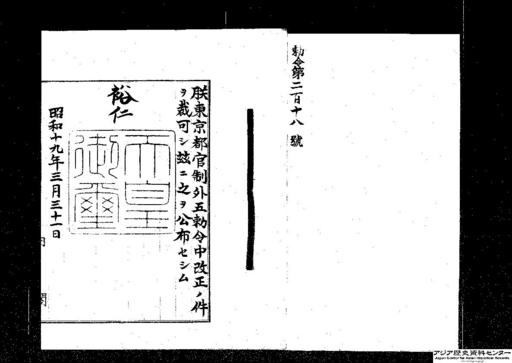 勅令第二百十八號
朕東京都官制外五勅令中改正ノ件
ヲ裁可シ玆ニ之ヲ公布セシム
裕仁
天皇御璽
昭和十九年三月三十一日
内
閣
アジア歴史資料センター
Japan Center for Asian Historical Records